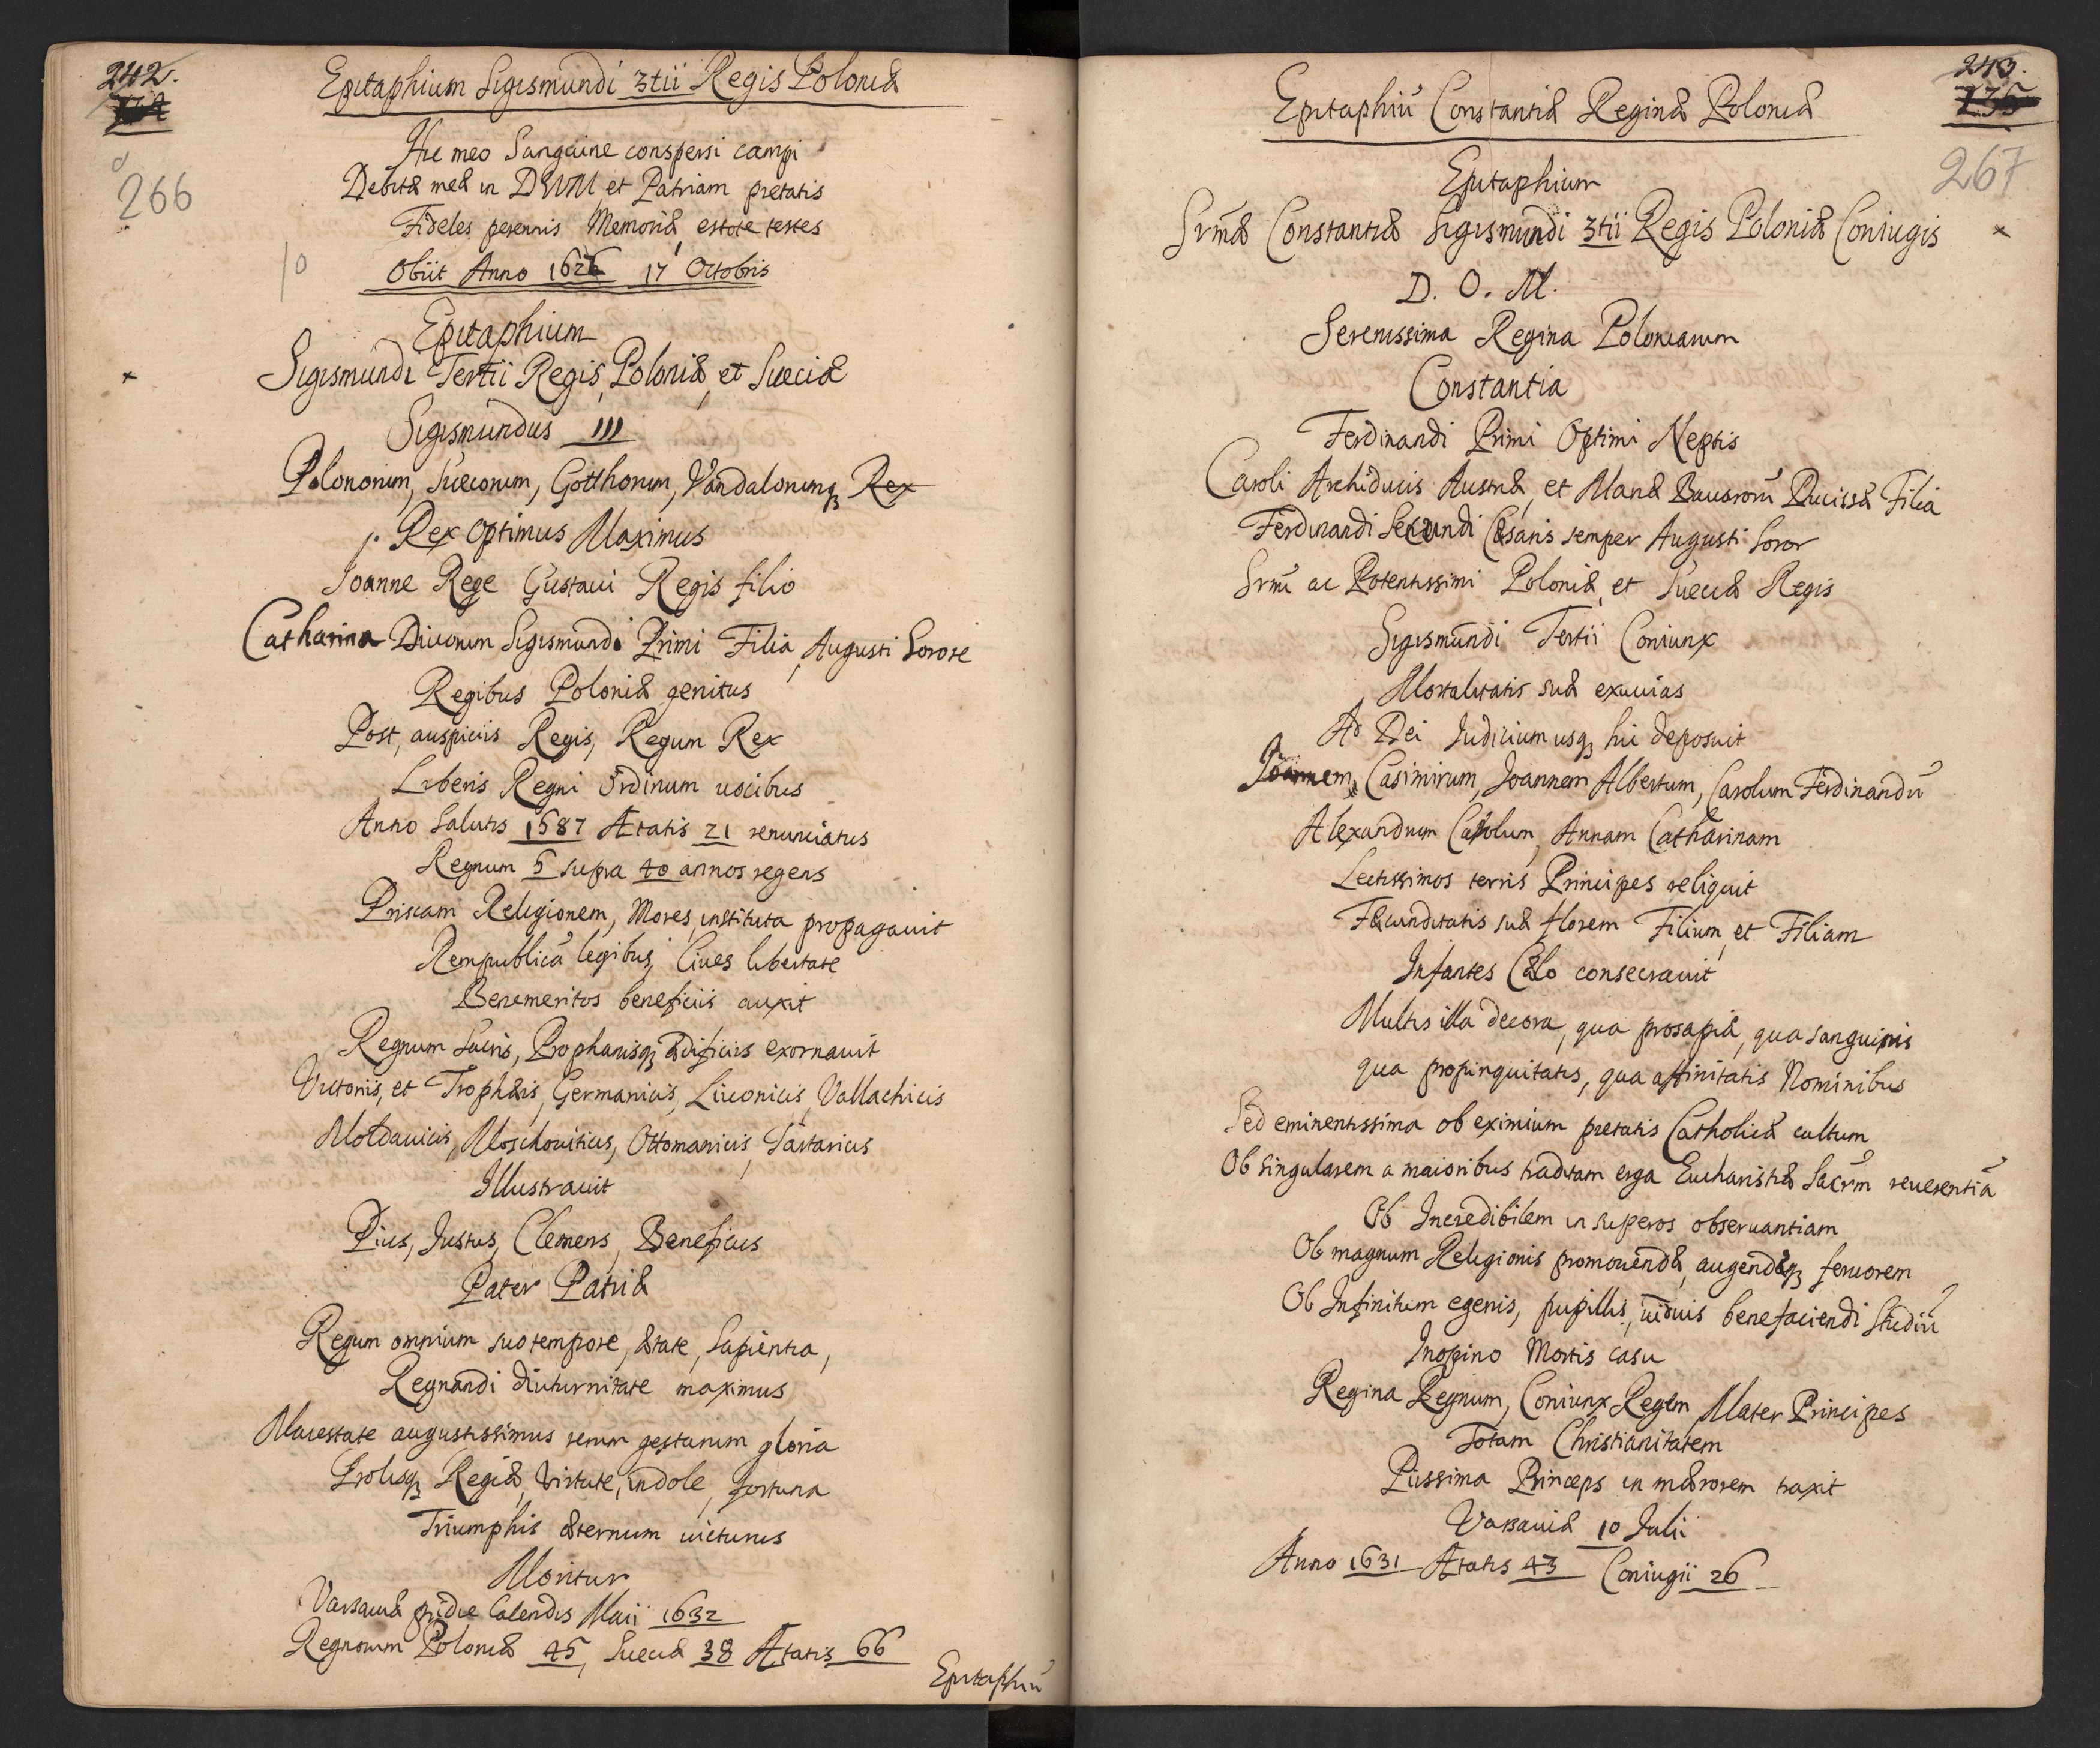 242.
266
Epitaphium Sigismundi 3tii Regis Poloniæ
Hic meo Sanguine conspersi campi
Debitæ meæ in DEUM et Patriam pietatis
Fideles perennis Memoriæ estote testes
10
Obiit Anno 1626 17 Octobris
Epitaphium
Sigismundi Tertii Regis Poloniæ, et Sueciæ
Sigismundus III
Polonorum, Suecorum, Gotthorum, Vandalorumq Rex
Rex Optimus Maximus
Joanne Rege Gustaui Regis filio
Catharina Diuorum Sigismundi Primi Filia, Augusti Sorore
Regibus Poloniæ genitus
Post, auspiciis Regis, Regum Rex
Liberis Regni Ordinum uocibus
Anno Salutis 1587 Ætatis 21 renunciatus
Regnum 5 supra 40 annos regens
Priscam Religionem, Mores, instituta propagauit
Rempublicã legibus, Ciues libertate
Benemeritos beneficiis auxit
Regnum Sacris, Prophanisq ædificiis exornauit
Victoriis, et Trophæis, Germanicis, Liuonicis, Vallachicis
Moldauicis, Moschouiticis, Ottomanicis, Tartaricis
Illustrauit
Pius, Justus, Clemens, Beneficus
Pater Patriæ
Regum omnium suo tempore, ætate, Sapientia,
Regnandi diuturnitate maximus
Maiestate augustissimus rerum gestarum gloria
Prolisq Regiæ, Virtute, indole, fortuna
Triumphis æternum uicturus
Moritur
Varsauiæ pridie Calendis Maii 1632
Regnorum Poloniæ 45, Sueciæ 38 Ætatis 66
Epitaphiũ
243.
135
267
Epitaphiũ Constantiæ Reginæ Poloniæ
Epitaphium
Srmæ Constantiæ Sigismundi 3tii Regis Poloniæ Coniugis
D. O. M.
Serenissima Regina Poloniarum
Constantia
Ferdinandi Primi Optimi Neptis
Caroli Archiducis Austriæ, et Mariæ Bauarorũ Ducissæ Filia
Ferdinandi Secundi Cæsaris semper Augusti Soror
Srmi ac Potentissimi Poloniæ, et Sueciæ Regis
Sigismundi Tertii Coniunx
Mortalitatis suæ exuuias
Ad Dei Judicium usq hic deposuit
Joannem, Casimirum, Joannem Albertum, Carolum Ferdinandũ
Alexandrum Carolum, Annam Catharinam
Lectissimos terris Principes reliquit
Fæcunditatis suæ florem Filium, et Filiam
Infantes Cælo consecrauit
Multis illa decora, qua prosapiæ, qua sanguinis
qua propinquitatis, qua affinitatis Nominibus
Sed eminentissima ob eximium pietatis Catholicæ cultum
Ob singularem a maioribus traditam erga Eucharistiæ Sacrm reuerentiã
Ob Incredibilem in superos obseruantiam
Ob magnum Religionis promouendæ, augendæq feruorem
Ob Infinitum egenis, pupillis, uiduis benefaciendi Studiũ
Inopino Mortis casu
Regina Regnum, Coniunx Regem, Mater Principes
Totam Christianitatem
Piissima Princeps in mærorem traxit
Varsauiæ 10 Julii
Anno 1631 Ætatis 43 Coniugii 26